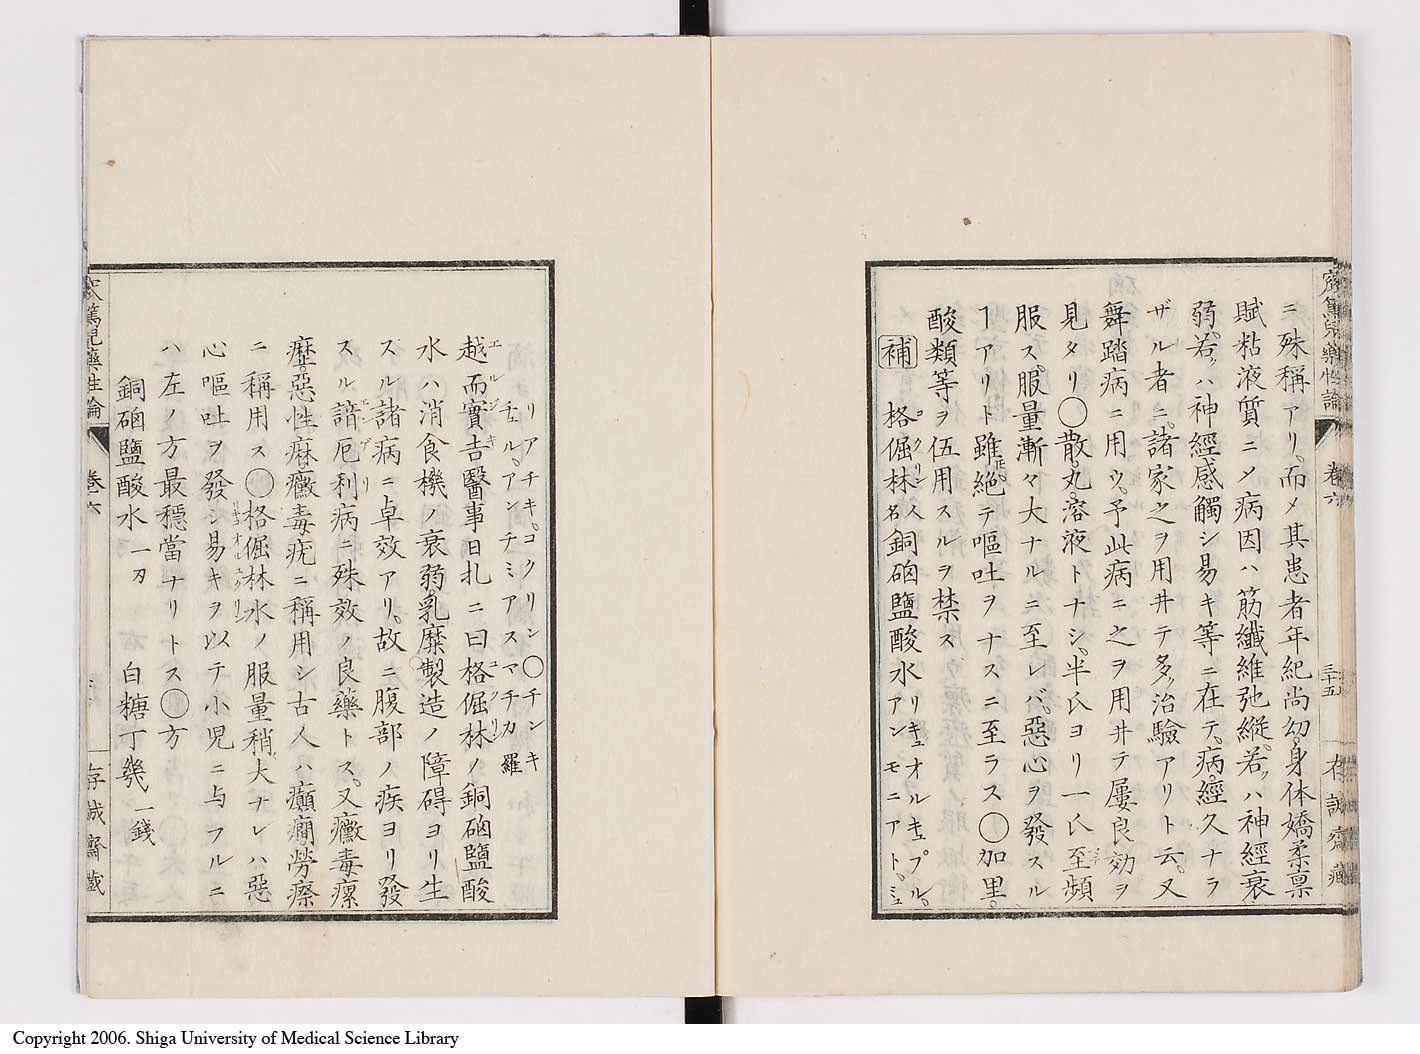 窊篤児藥性論
卷六
三十五
存誠齋藏
ニ殊稱アリ。而メ其患者年紀尚幼。身体嬌柔稟
賦粘液質ニメ病因ハ筋纖維弛縦。若ハ神經衰
弱。若ハ神經感觸シ易キ等ニ在テ。病經久ナラ
ザル者ニ。諸家之ヲ用井テ多ク治驗アリト云。又
舞踏病ニ用ウ。予此病ニ之ヲ用井テ屢良効ヲ
見タリ〇散。丸。溶液トナシ。半氏ヨリ一氏至頻
服ス。服量漸々大ナルニ至レバ。惡心ヲ發スル
ヿアリト雖絶テ嘔吐ヲナスニ至ラス〇加里。
酸類等ヲ伍用スルヲ禁ス
補 格倔林名銅硇鹽酸水
コクリン人
リキュオルキュプル。
アンモニアト、ミュ
リアチキ。コクリン〇チンキ
チュル。アンチミアスマチカ 羅
越而實吉醫事日札ニ曰格倔林ノ銅硇鹽酸
エルジキ
コクリン
水ハ消食機ノ衰弱。乳糜製造ノ障碍ヨリ生
スル諸病ニ卓效アリ。故ニ腹部ノ疾ヨリ發
スル諳厄利病ニ殊效ノ良藥トス。又黴毒瘰
癧。惡性痳。黴毒疣ニ稱用シ古人ハ癲癇勞瘵
ニ稱用ス〇格倔林水ノ服量稍大ナレハ惡
心嘔吐ヲ發シ易キヲ以テ小児ニ与フルニ
ハ左ノ方最穩當ナリトス〇方
銅硇鹽酸水 一刃 白糖丁幾 一錢
窊篤児藥性論
卷六
存誠齋藏
Copyright 2006. Shiga University of Medical Science Library